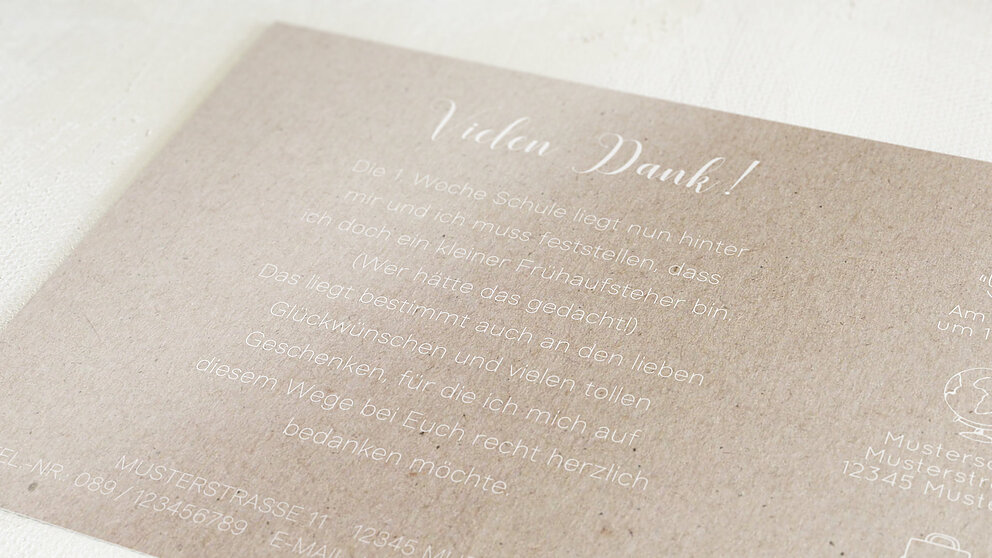 Vielen Dank!
Die 1. Woche Schule liegt nun hinter
mir und ich muss feststellen, dass
ich doch ein kleiner Frühaufsteher bin.
(Wer hätte das gedacht!)
Das liegt bestimmt auch an den lieben
Glückwünschen und vielen tollen
Geschenken, für die ich mich auf
diesem Wege bei Euch recht herzlich
bedanken möchte.
MUSTERSTRASSE 11 12345 MU
EL.-NR.: 089 / 123456789 E-MAIL
Am
um 1
Mustersc
Musterstr
12345 Must